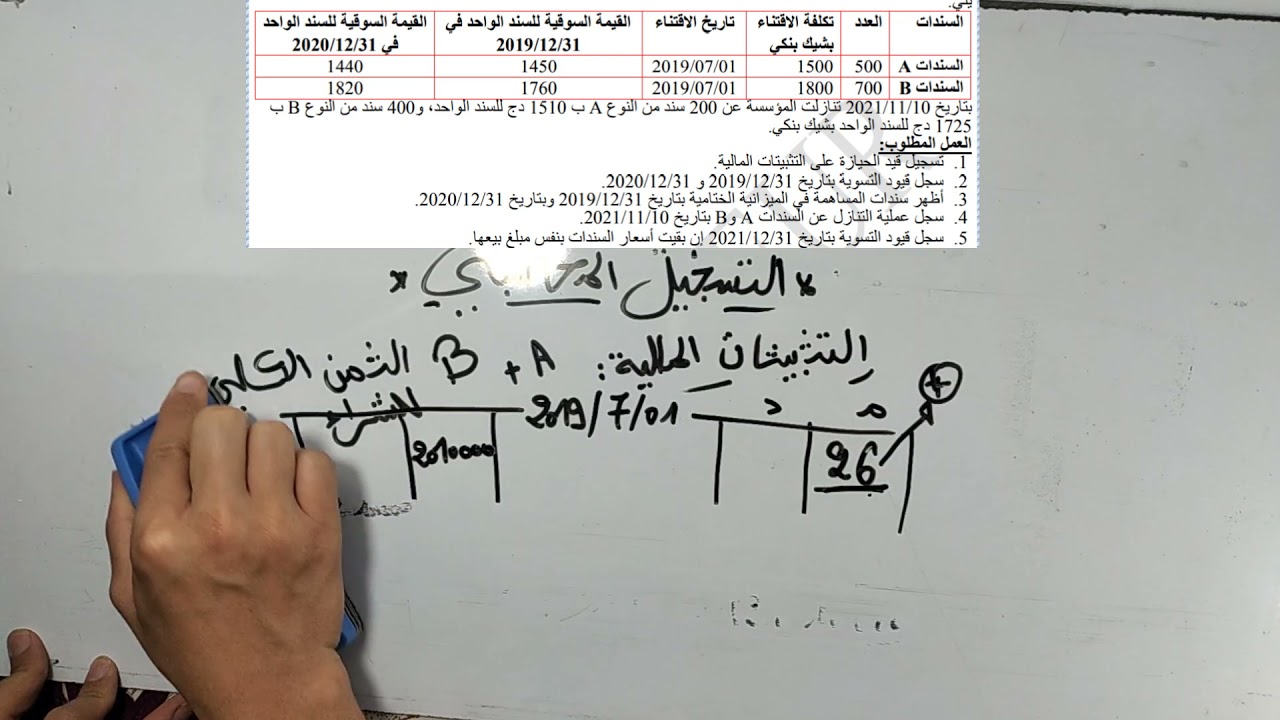 السندات العدد تكلفة الاقتناء بشيك بنكي تاريخ الاقتناء القيمة السوقية للسند الواحد في 2019/12/31 القيمة السوقية للسند الواحد في 2020/12/31
السندات A 500 1500 2019/07/01 1450 1440
السندات B 700 1800 2019/07/01 1760 1820
بتاريخ 2021/11/10 تنازلت المؤسسة عن 200 سند من النوع A ب 1510 دج للسند الواحد، و400 سند من النوع B ب
1725 دج للسند الواحد بشيك بنكي.
العمل المطلوب:
1. تسجيل قيد الحيازة على التثبيتات المالية.
2. سجل قيود التسوية بتاريخ 2019/12/31 و 2020/12/31.
3. أظهر سندات المساهمة في الميزانية الختامية بتاريخ 2019/12/31 وبتاريخ 2020/12/31.
4. سجل عملية التنازل عن السندات A وB بتاريخ 2021/11/10.
5. سجل قيود التسوية بتاريخ 2021/12/31 إن بقيت أسعار السندات بنفس مبلغ بيعها.
* التسجيل المحاسبي *
التثبيتات المالية: A + B الثمن الكلي
للشراء
م د 2019/7/01
26 2010000
+